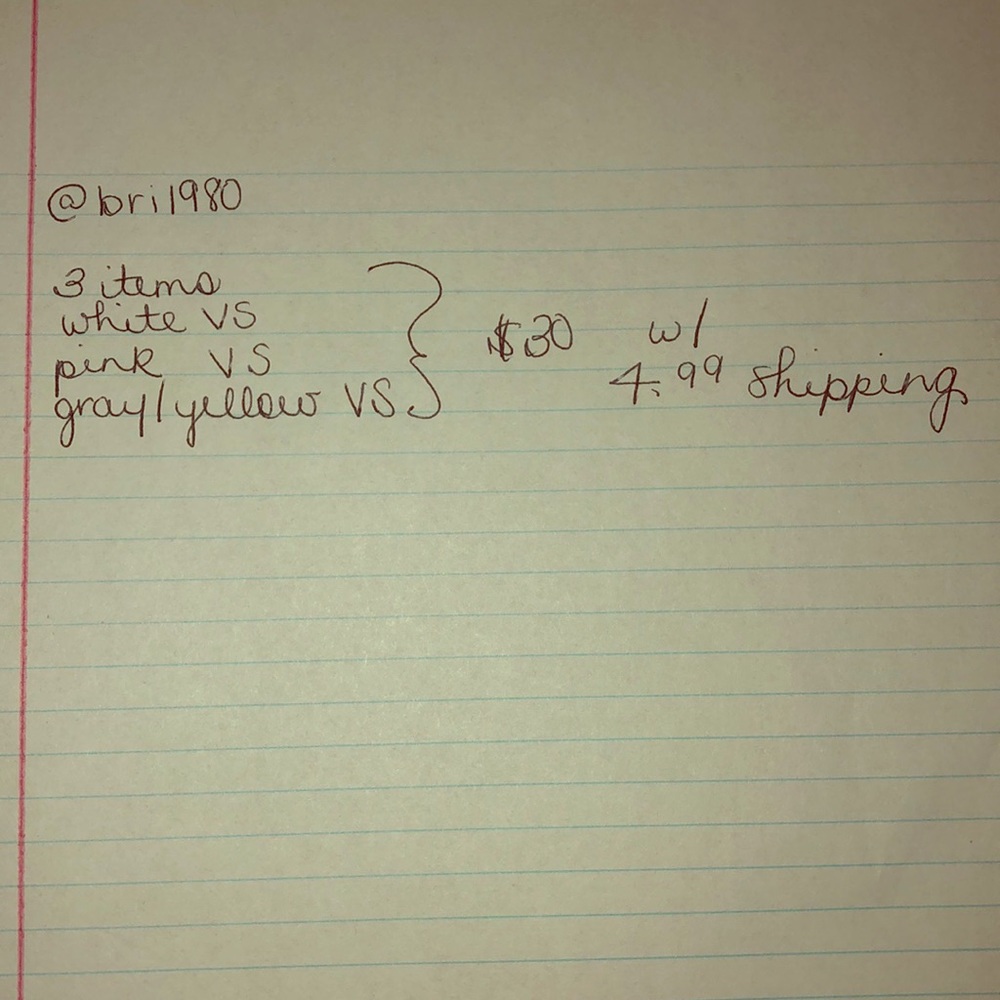 @bri1980
3 items
white VS
pink VS
gray/yellow VS
$30 w/
4.99 shipping